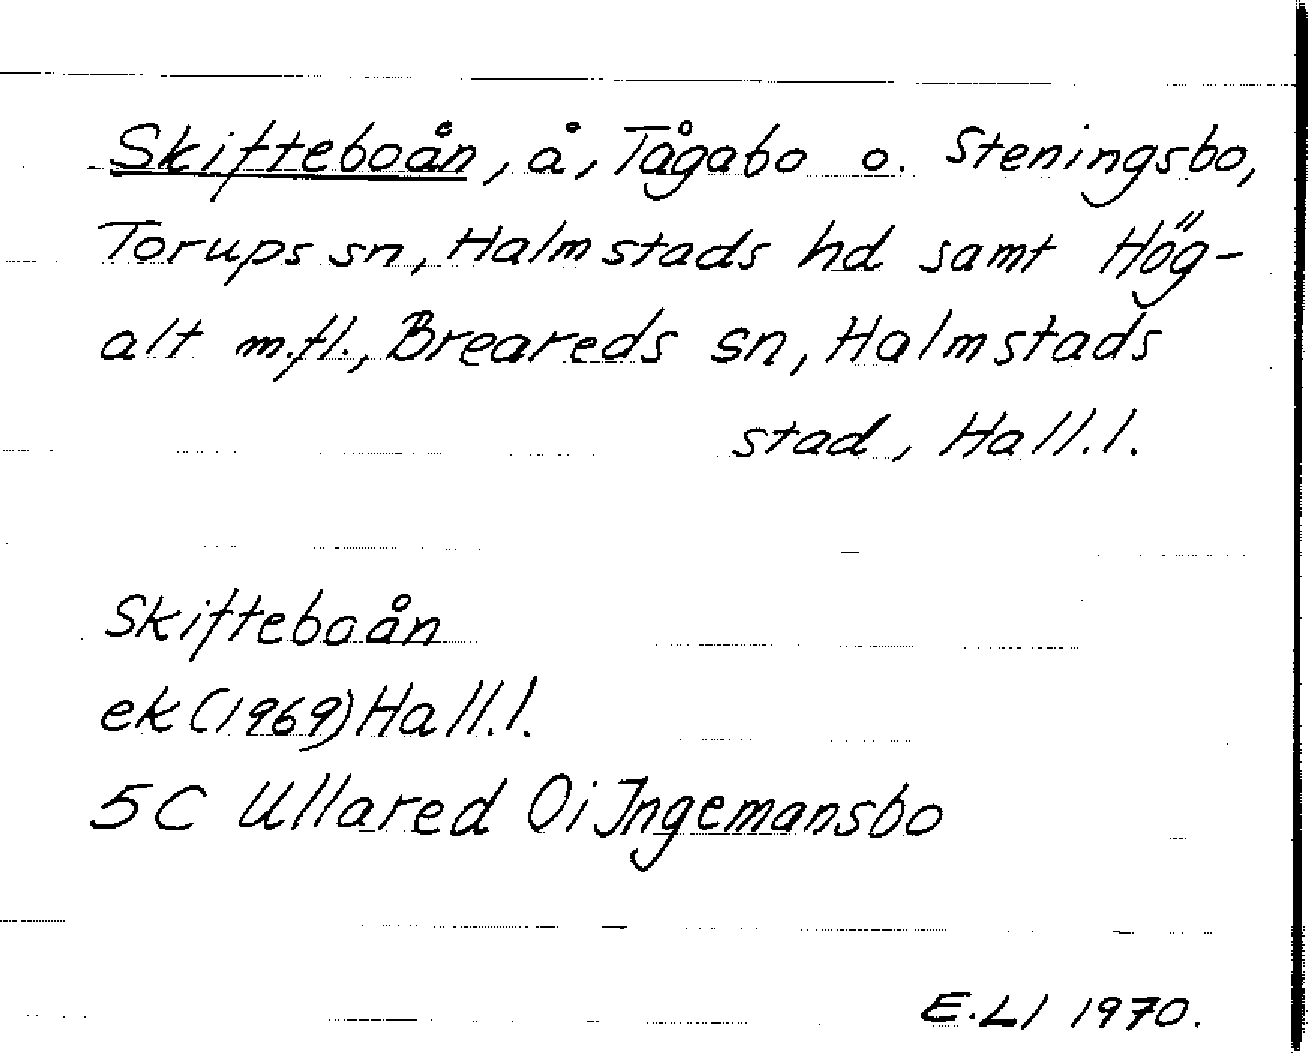 Skifteboån, å, Tågabo o. Steningsbo,
Torups sn, Halmstads hd samt Hög-
alt m.fl., Breareds sn, Halmstads
stad, Hall.l.
Skifteboån
ek (1969) Hall.l.
5C Ullared Oi Ingemansbo
E.Ll 1970.